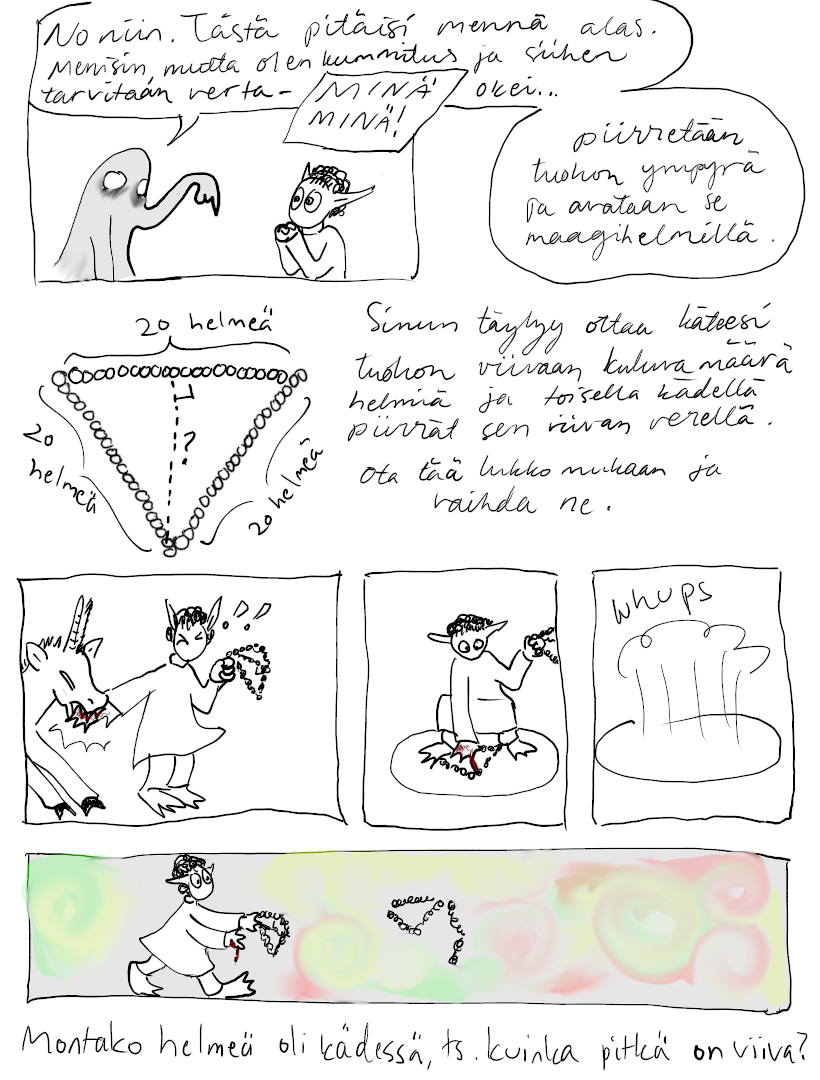 No niin. Tästä pitäisi mennä alas.
Menisin, mutta olen kummitus ja siihen
tarvitaan verta-
MINÄ
MINÄ!
okei...
piirretään
tuohon ympyrä
ja avataan se
maagihelmillä.
20 helmeä
20
helmeä
20 helmeä
?
Sinun täytyy ottaa käteesi
tuohon viivaan kuluva määrä
helmiä ja toisella kädellä
piirrät sen viivan verellä.
Ota tää lukko mukaan ja
vaihda ne.
! ! !
whups
Montako helmeä oli kädessä, ts. kuinka pitkä on viiva?